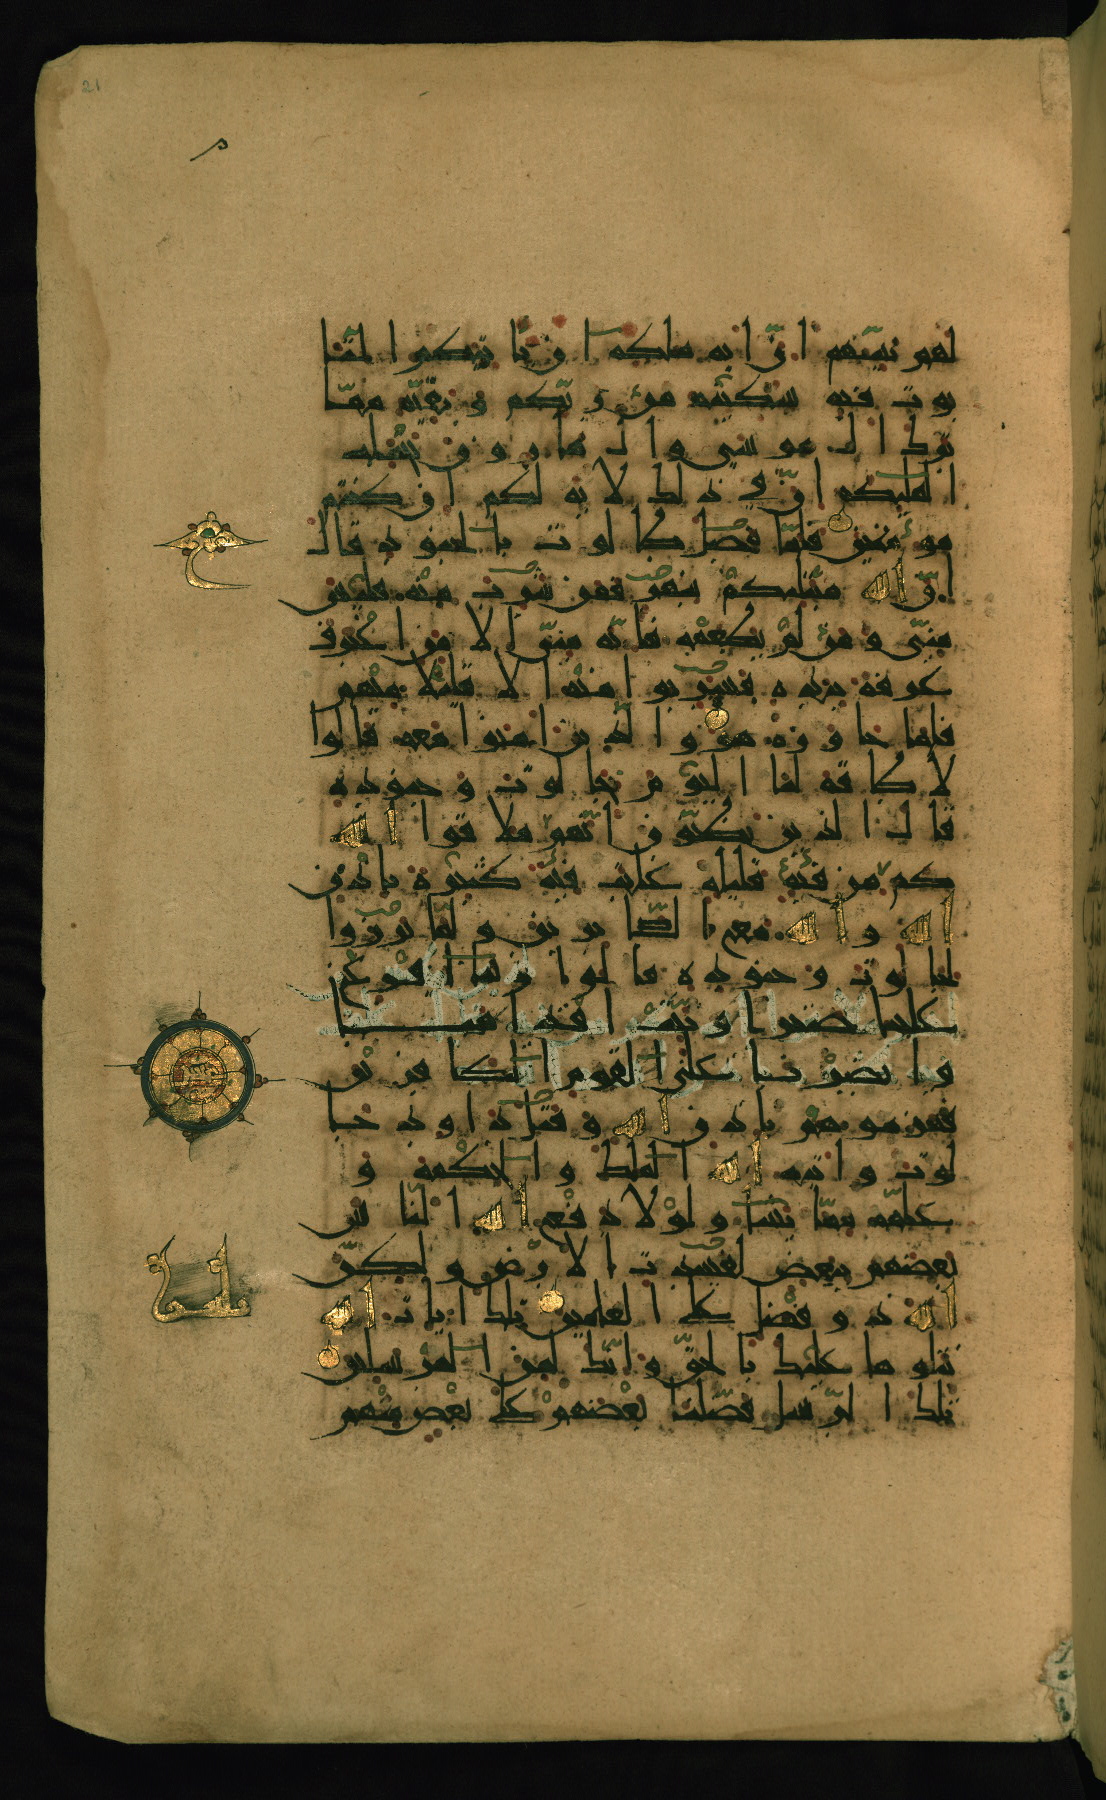 21
لهم نبيهم ان اية ملكه ان ياتيكم التا
بوت فيه سكينة من ربكم وبقية مما
ترك ال موسى وال هارون تحمله
الملئكة ان في ذلك لاية لكم ان كنتم
مؤمنين فلما فصل طالوت بالجنود قال
ان الله مبتليكم بنهر فمن شرب منه فليس
مني ومن لم يطعمه فانه مني الا من اغترف
غرفة بيده فشربوا منه الا قليلا منهم
فلما جاوزه هو والذين امنوا معه قالوا
لا طاقة لنا اليوم بجالوت وجنوده
قال الذين يظنون انهم ملاقوا الله
كم من فئة قليلة غلبت فئة كثيرة باذن
الله والله مع الصابرين ولما برزوا
لجالوت وجنوده قالوا ربنا افرغ
علينا صبرا وثبت اقدامنا
وانصرنا على القوم الكافرين
فهزموهم باذن الله وقتل داود جا
لوت واتيه الله الملك والحكمة و
علمه مما يشاء ولولا دفع الله الناس
بعضهم ببعض لفسدت الارض ولكن
الله ذو فضل على العالمين تلك ايات الله
نتلوها عليك بالحق وانك لمن المرسلين
تلك الرسل فضلنا بعضهم على بعض منهم